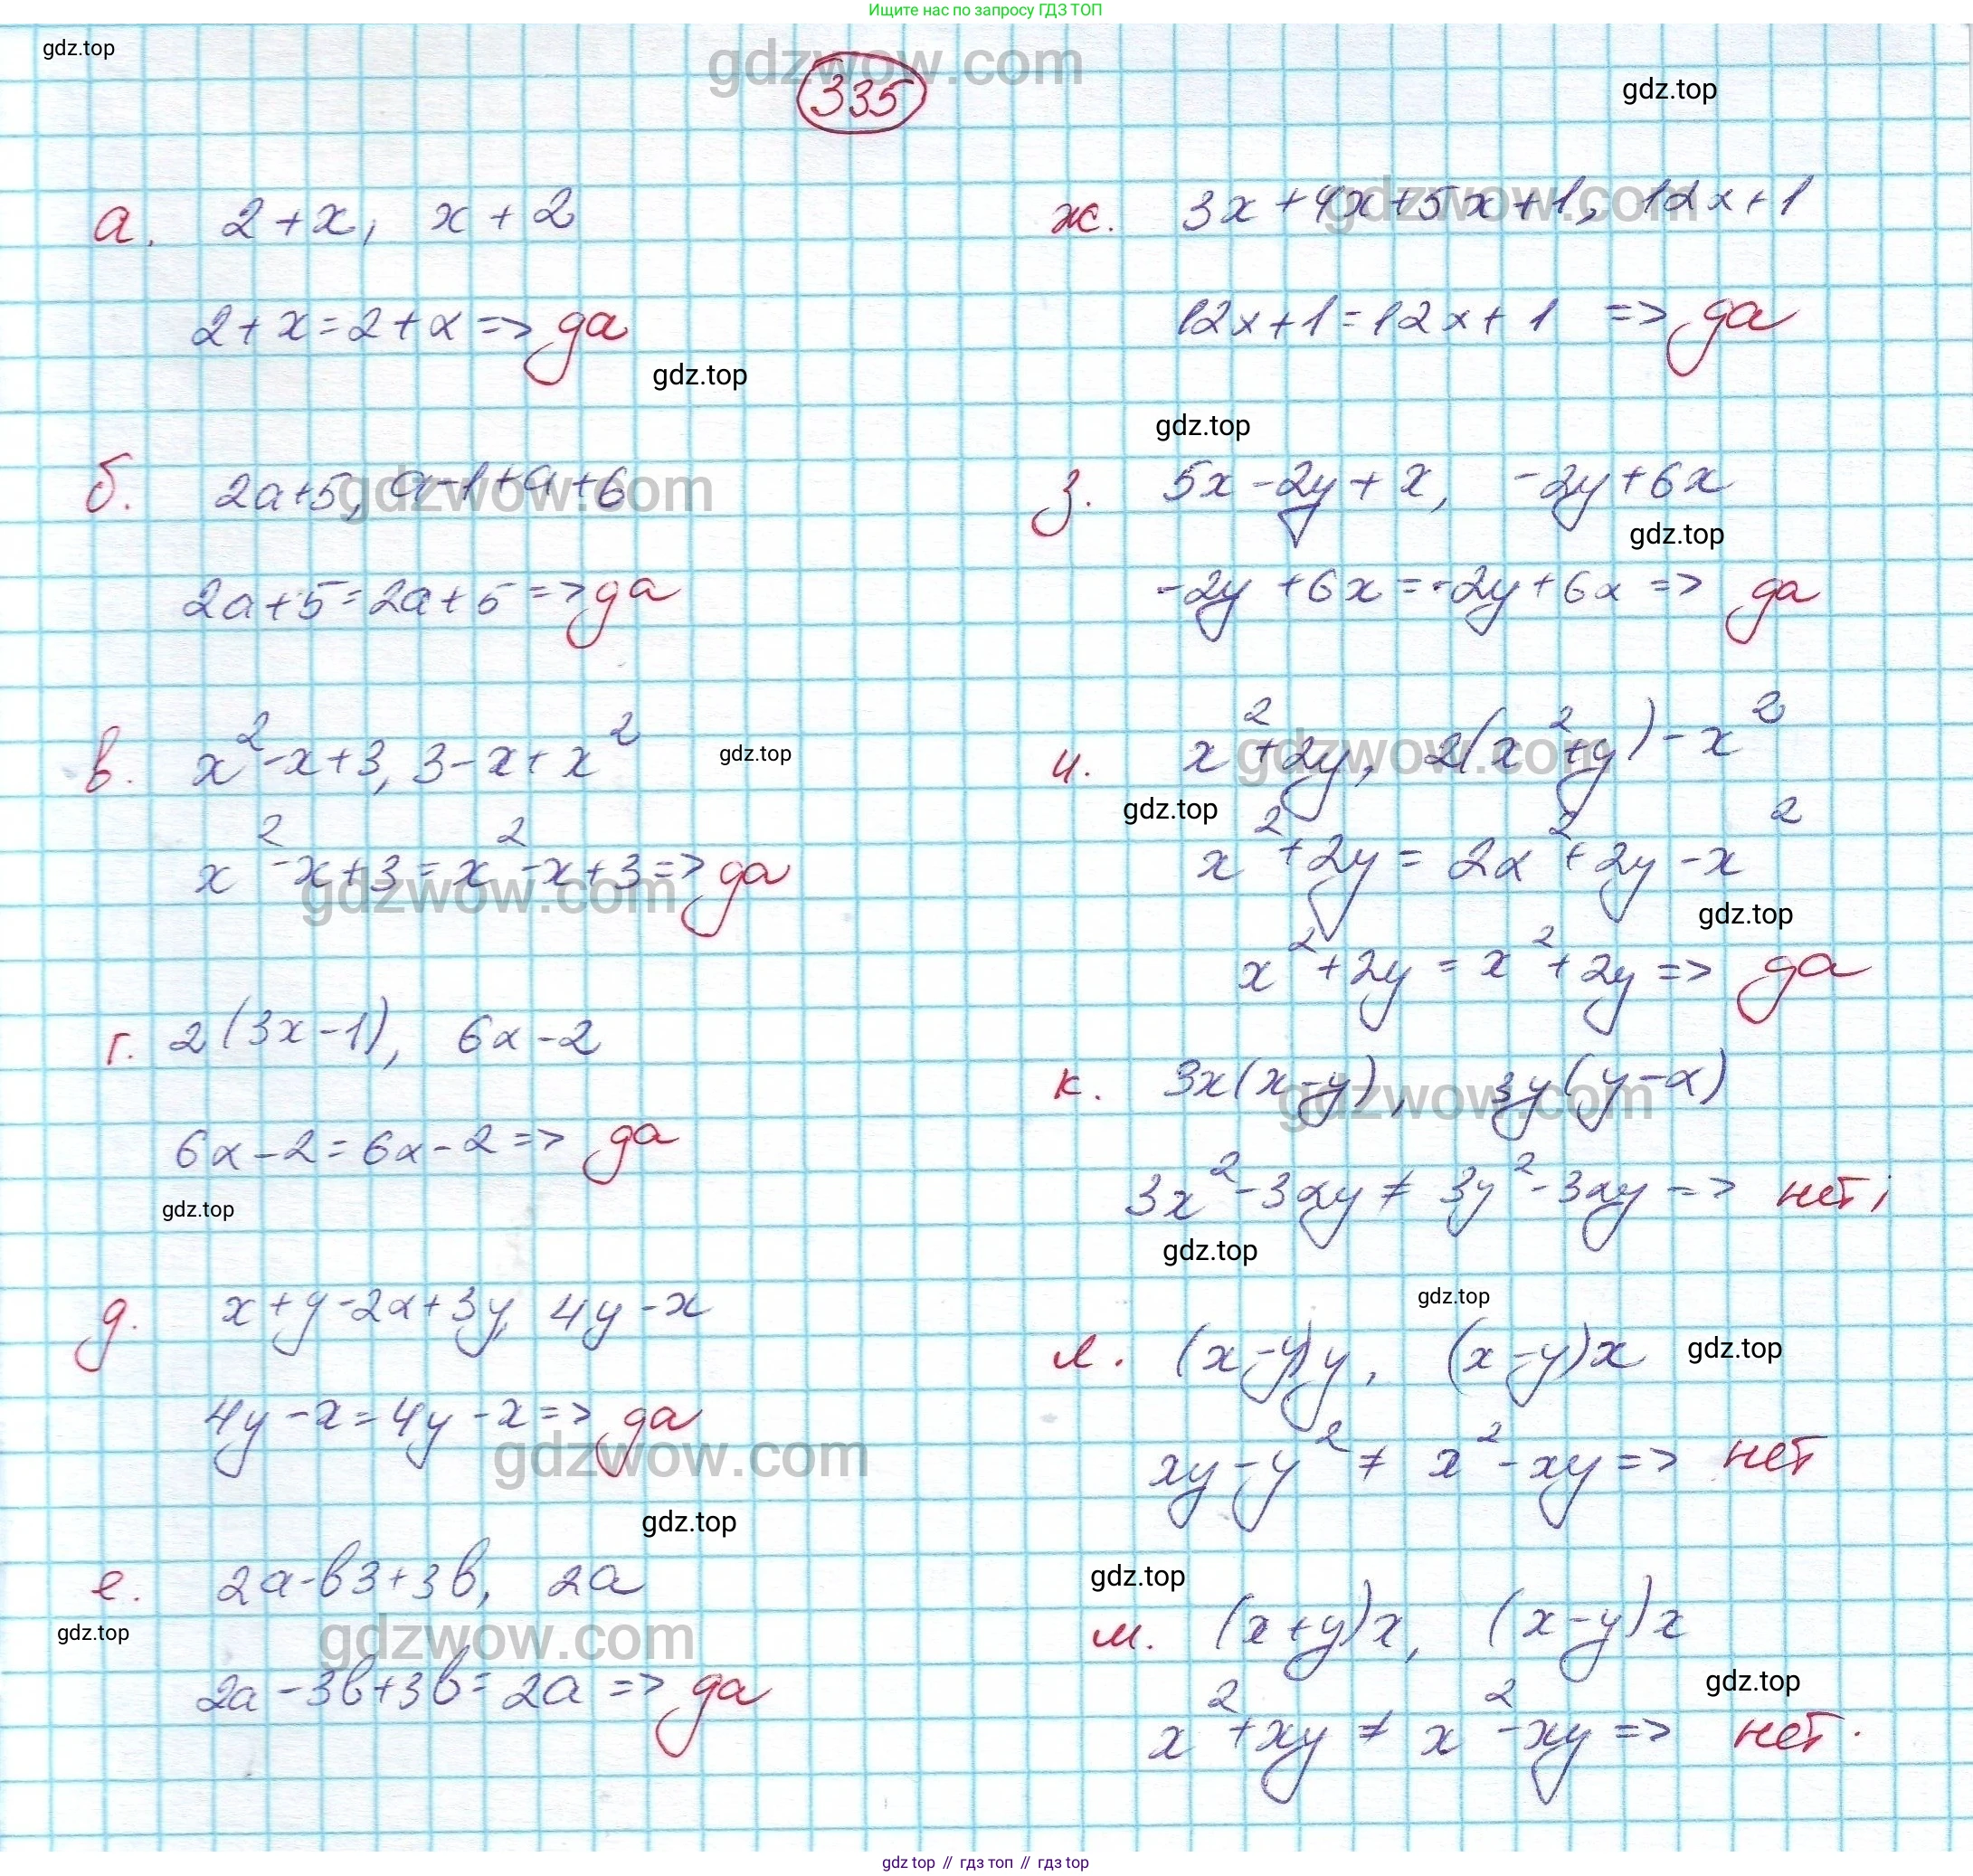 Ищите нас по запросу ГДЗ ТОП
gdz.top
gdzwow.com
335
gdz.top
а. 2+x, x+2
2+x=2+x => да
gdz.top
б. 2a+5, a-1+a+6
gdzwow.com
2a+5=2a+5 => да
в. x²-x+3, 3-x+x²
gdz.top
x²-x+3=x²-x+3 => да
gdzwow.com
г. 2(3x-1), 6x-2
6x-2=6x-2 => да
gdz.top
д. x+y-2x+3y, 4y-x
4y-x=4y-x => да
gdzwow.com
gdz.top
е. 2a-b3+3b, 2a
gdz.top
gdzwow.com
2a-3b+3b=2a => да
ж. 3x+4x+5x+1, 12x+1
gdzwow.com
12x+1=12x+1 => да
gdz.top
з. 5x-2y+x, -2y+6x
gdz.top
-2y+6x=-2y+6x => да
и. x²+2y, 2(x²+y)-x²
gdzwow.com
gdz.top
x²+2y=2x²+2y-x²
gdz.top
x²+2y=x²+2y => да
к. 3x(x-y), 3y(y-x)
gdzwow.com
3x²-3xy≠3y²-3xy => нет;
gdz.top
gdz.top
л. (x-y)y, (x-y)x
gdz.top
xy-y²≠x²-xy => нет
gdz.top
м. (x+y)x, (x-y)x
gdz.top
x²+xy≠x²-xy => нет.
gdz.top // гдз топ // гдз top